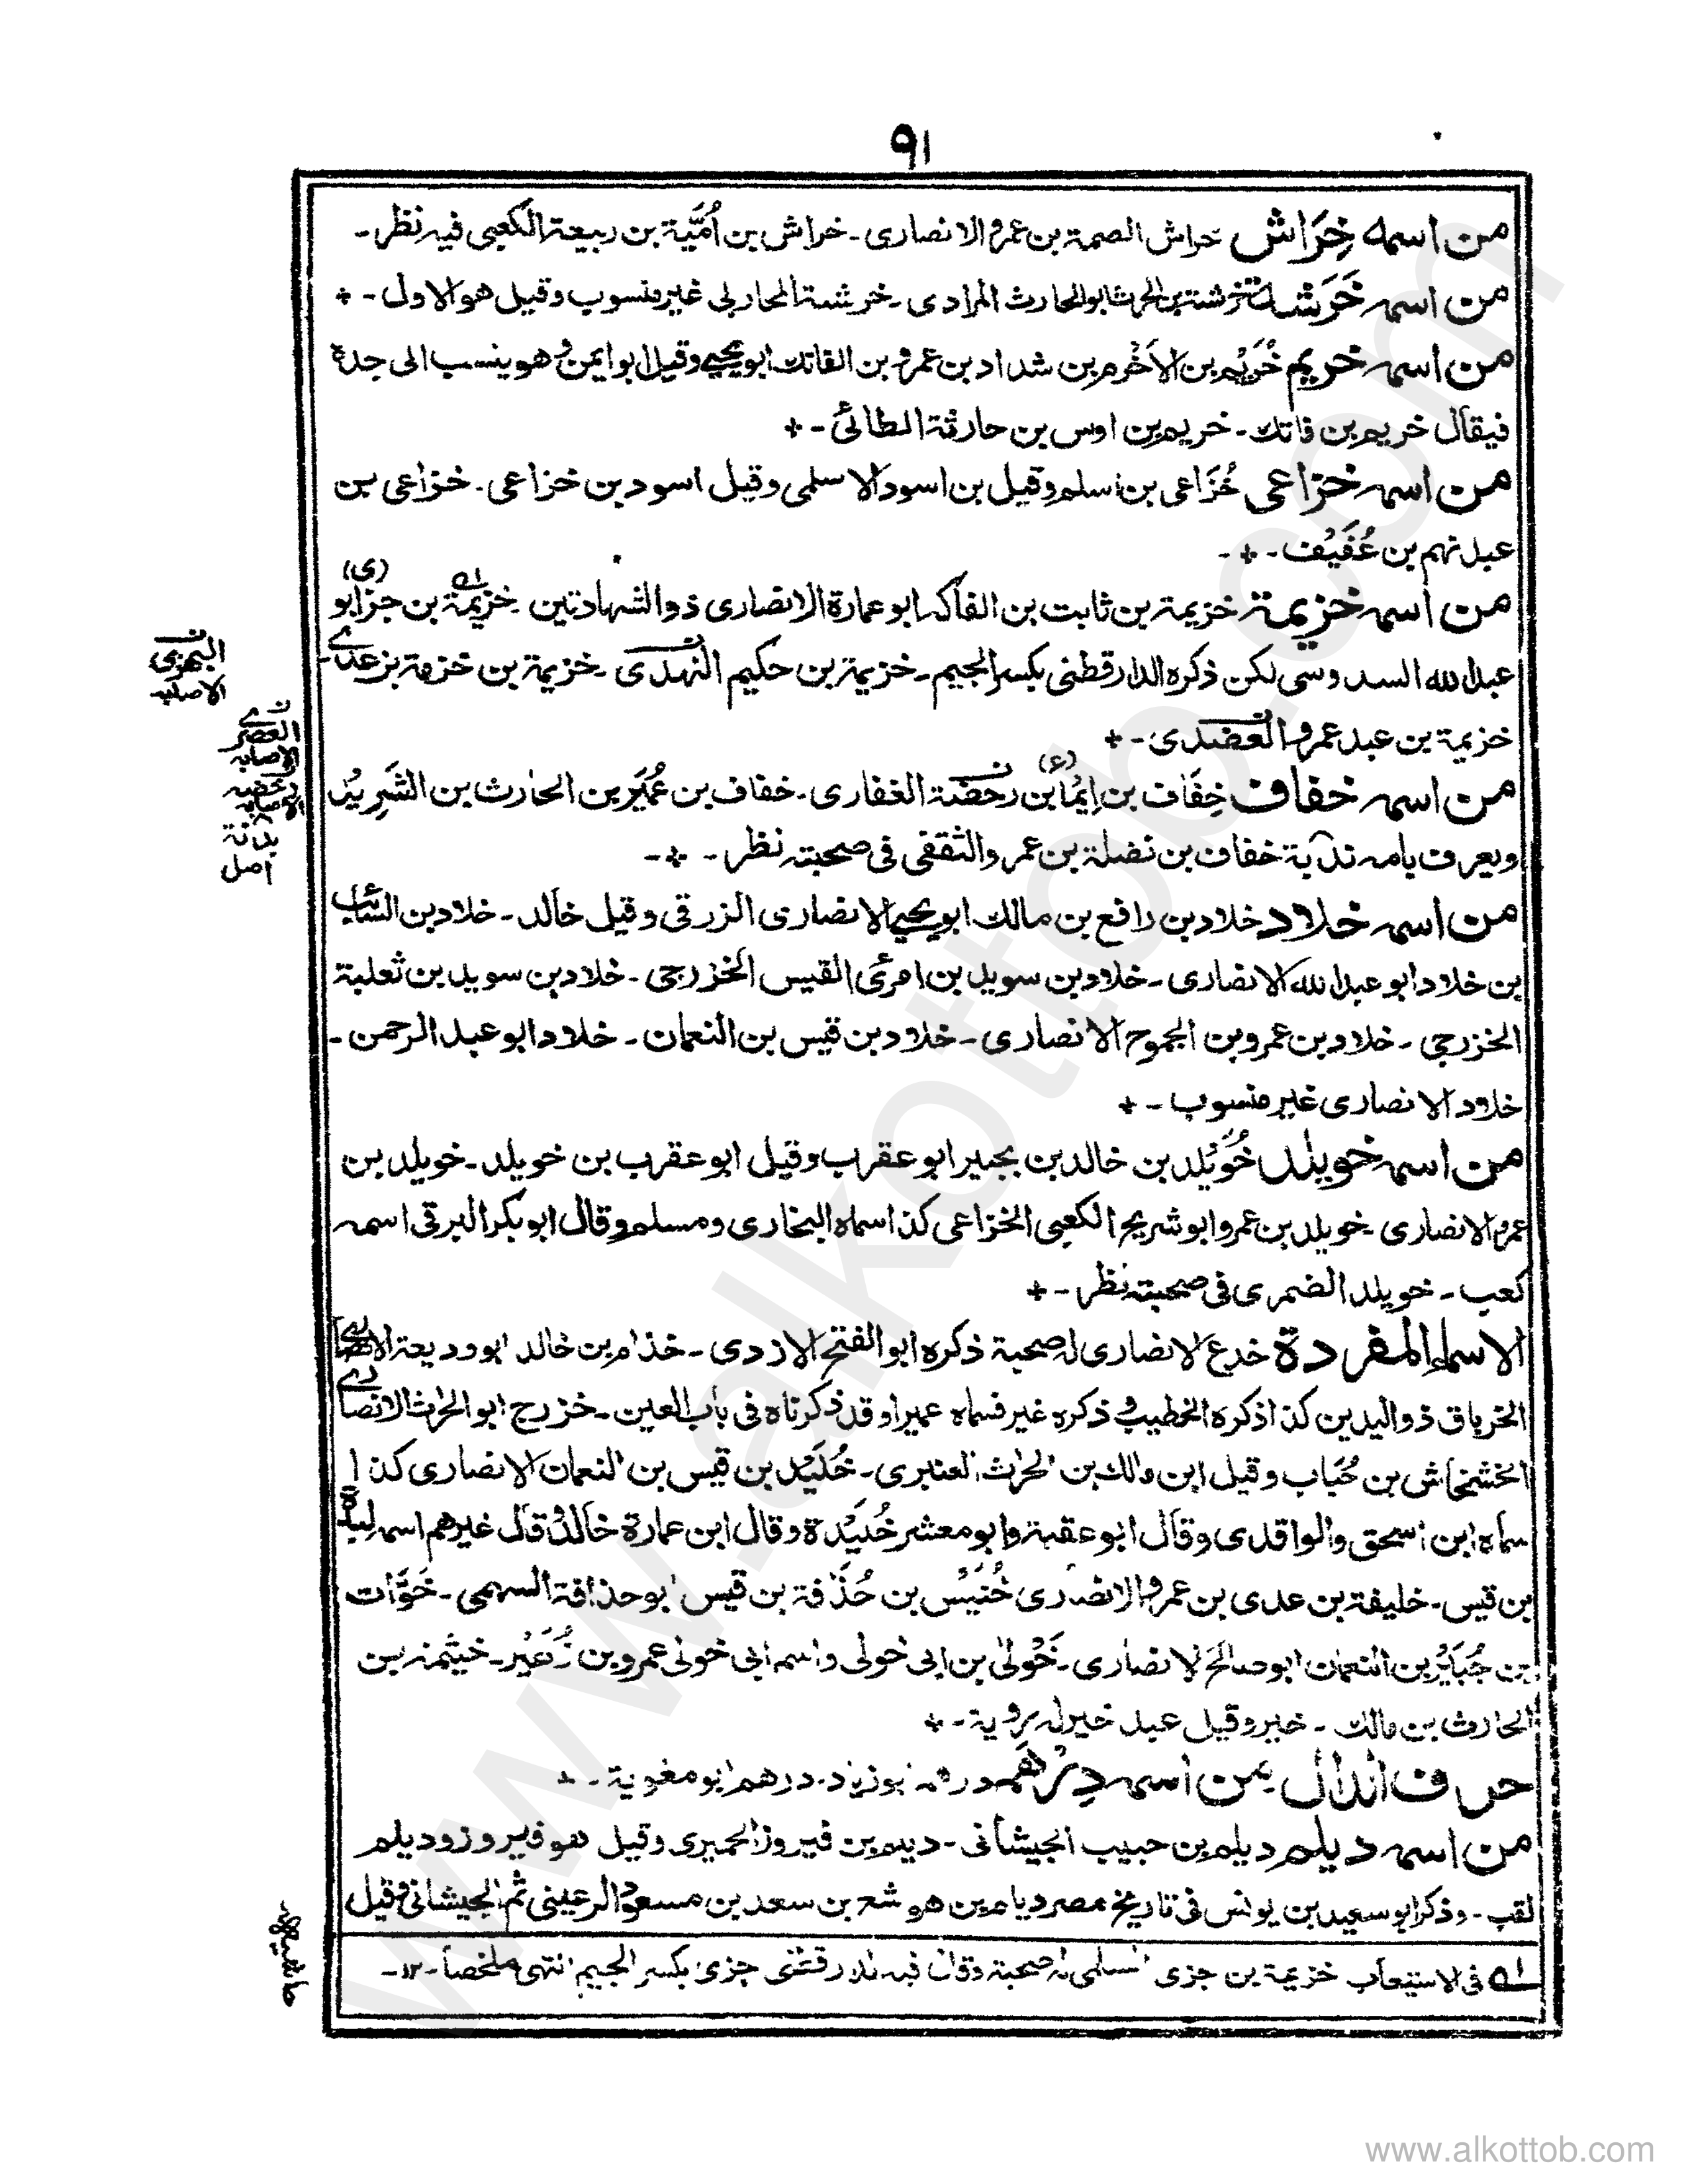 ٩١
من اسمه خِرَاش خراش الصمة بن عمرو الانصاری - خراش بن اُمَیَّة بن ربیعة الکعبی فیه نظر -
من اسمه خَرَشة خرشة بن الحرث ابو الحارث المرادی - خرشة المحاربی غیر منسوب وقیل هو الاول - +
من اسمه خریم خُرَیْم بن الاَخْرم بن شداد بن عمرو بن الفاتك ابو یحیے وقیل ابو ایمن وهو ینسب الی جدہ
فیقال خریم بن فاتك - خریم بن اوس بن حارثة الطائی - +
من اسمه خزاعی خُزَاعی بن اسلم وقیل بن اسود الاسلمی وقیل اسود بن خزاعی - خزاعی بن
عبد نهم بن عُفَیْف - + -
من اسمه خزیمة خزیمة بن ثابت بن الفاکه ابو عمارة الانصاری ذو الشهادتین - خزیمة بن جز (ی) ابو
عبد الله السدوسی لکن ذکرہ الدارقطنی بکسر الجیم - خزیمة بن حکیم النهدی - خزیمة بن خزمة بن عدے -
خزیمة بن عبد عمرو العضدی - +
من اسمه خفاف خِفَاف بن اِیْمَا (ء) بن رحضة الغفاری - خفاف بن عُمَیَر بن الحارث بن الشَرِیْد
ویعرف بامه ندبة خفاف بن نضلة بن عمرو الثقفی فی صحبته نظر - + -
من اسمه خلاد خلاد بن رافع بن مالك ابو یحیے الانصاری الزرقی وقیل خالد - خلاد بن السائب
بن خلاد ابو عبد الله الانصاری - خلاد بن سوید بن امرئ القیس الخزرجی - خلاد بن سوید بن ثعلبة
الخزرجی - خلاد بن عمرو بن الجموح الانصاری - خلاد بن قیس بن النعمان - خلاد ابو عبد الرحمن -
خلاد الانصاری غیر منسوب - +
من اسمه خویلد خُوَیْلد بن خالد بن بجیر ابو عقرب وقیل ابو عقرب بن خویلد - خویلد بن
عمرو الانصاری - خویلد بن عمرو ابو شریح الکعبی الخزاعی کذا سماہ البخاری ومسلم وقال ابو بکر البرقی اسمه
کعب - خویلد الضمری فی صحبته نظر - +
الاسماء المفردة خدع الانصاری له صحبة ذکرہ ابو الفتح الازدی - خذام بن خالد ابو ودیعة الانصاری
الخرباق ذو الیدین کذا ذکرہ الخطیب وذکرہ غیر فسماہ عمیرا وقد ذکرناہ فی باب العین - خزرج ابو الحرث الانصارے
الخشخاش بن حُبَاب وقیل ابن مالك بن الحرث العنبری - خُلَیْد بن قیس بن النعمان الانصاری کذا
سماہ ابن اسحق والواقدی وقال ابو عقبة وابو معشر خُلَیْدة وقال ابن عمارة خالد وقال غیرهم اسمه لبدة
بن قیس - خلیفة بن عدی بن عمرو الانصاری خُنَیْس بن حُذَافة بن قیس ابو حذافة السهمی - خَوَّات
بن جُبَیْر بن النعمان ابو صالح الانصاری - خَوْلی بن ابی خولی واسم ابی خولی عمرو بن زُهَیْر - خیثمة بن
الحارث بن مالك - خیر وقیل عبد خیر له رویة - +
حرف الدال من اسمه دِرْهَم درهم ابو زیاد - درهم ابو معویة - +
من اسمه دیلم دیلم بن حبیب الجیشانی - دیلم بن فیروز الحمیری وقیل هو فیروز ودیلم
لقب - وذکر ابو سعید بن یونس فی تاریخ مصر دیلم بن هوشع بن سعد بن مسعود الرعینی ثم الجیشانی وقیل
له فی الاستیعاب خزیمة بن جزی السلمی له صحبة وقال فیه الدارقطنی جزی بکسر الجیم انتهی ملخصا - ١٢ -
الاصابه
العصر
الاصابه
رحضه
الاصابه
اصل
حاشیه
www.alkottob.com
www.alkottob.com